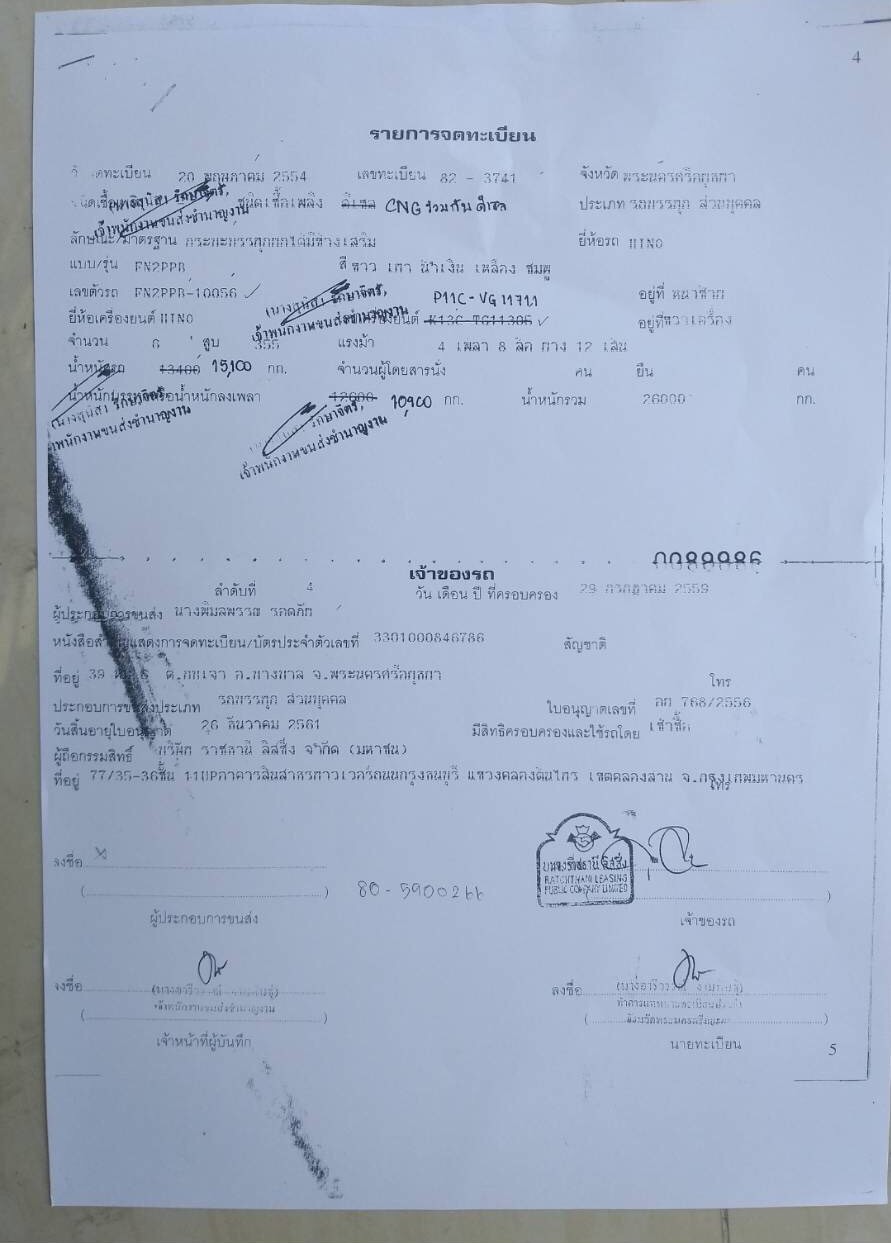 4
รายการจดทะเบียน
จดทะเบียน 20 พฤษภาคม 2554 เลขทะเบียน 82 - 3741 จังหวัด พระนครศรีอยุธยา
ชนิดเชื้อเพลิง ดีเซล CNG ร่วมกับ ดีเซล ประเภท รถบรรทุก ส่วนบุคคล
รักษาจิตร์,
เจ้าพนักงานขนส่งชำนาญงาน
ลักษณะ/มาตรฐาน กระบะบรรทุกยกได้มีข้างเสริม ยี่ห้อรถ HINO
แบบ/รุ่น FN2PPB สี ขาว เทา น้ำเงิน เหลือง ชมพู
เลขตัวรถ FN2PPB-10056 P11C-VG11711 อยู่ที่ หน้าซ้าย
รักษาจิตร์,
เจ้าพนักงานขนส่งชำนาญงาน
ยี่ห้อเครื่องยนต์ HINO เครื่องยนต์ K13C-TG11305 อยู่ที่ ขวาเครื่อง
จำนวน 6 สูบ 355 แรงม้า 4 เพลา 8 ล้อ ยาง 12 เส้น
น้ำหนักรถ 13400 15,100 กก. จำนวนผู้โดยสารนั่ง คน ยืน คน
น้ำหนักบรรทุกหรือน้ำหนักลงเพลา 12600 10,900 กก. น้ำหนักรวม 26000 กก.
รักษาจิตร์,
เจ้าพนักงานขนส่งชำนาญงาน
รักษาจิตร์,
เจ้าพนักงานขนส่งชำนาญงาน
0089986
เจ้าของรถ
ลำดับที่ 4 วัน เดือน ปี ที่ครอบครอง 29 กรกฎาคม 2559
ผู้ประกอบการขนส่ง นางพิมลพรรณ
หนังสือสำคัญแสดงการจดทะเบียน/บัตรประจำตัวเลขที่ 3301000846786 สัญชาติ
ที่อยู่ 39 อ.บางบาล จ.พระนครศรีอยุธยา โทร
ประกอบการขนส่งประเภท รถบรรทุก ส่วนบุคคล ใบอนุญาตเลขที่ 768/2556
วันสิ้นอายุใบอนุญาต 26 ธันวาคม 2561 มีสิทธิครอบครองและใช้รถโดย เช่าซื้อ
ผู้ถือกรรมสิทธิ์ บริษัท ราชธานี ลิสซิ่ง จำกัด (มหาชน)
ที่อยู่ 77/35-36ชั้น 11UPอาคารสินสาธรทาวเวอร์ถนนกรุงธนบุรี แขวงคลองต้นไทร เขตคลองสาน จ.กรุงเทพมหานคร โทร
RATCHTHANI LEASING
PUBLIC COMPANY LIMITED
ลงชื่อ
( ) 80-5900266 )
ผู้ประกอบการขนส่ง เจ้าของรถ
ลงชื่อ ลงชื่อ
เจ้าพนักงานขนส่งชำนาญงาน
เจ้าหน้าที่ผู้บันทึก นายทะเบียน
5